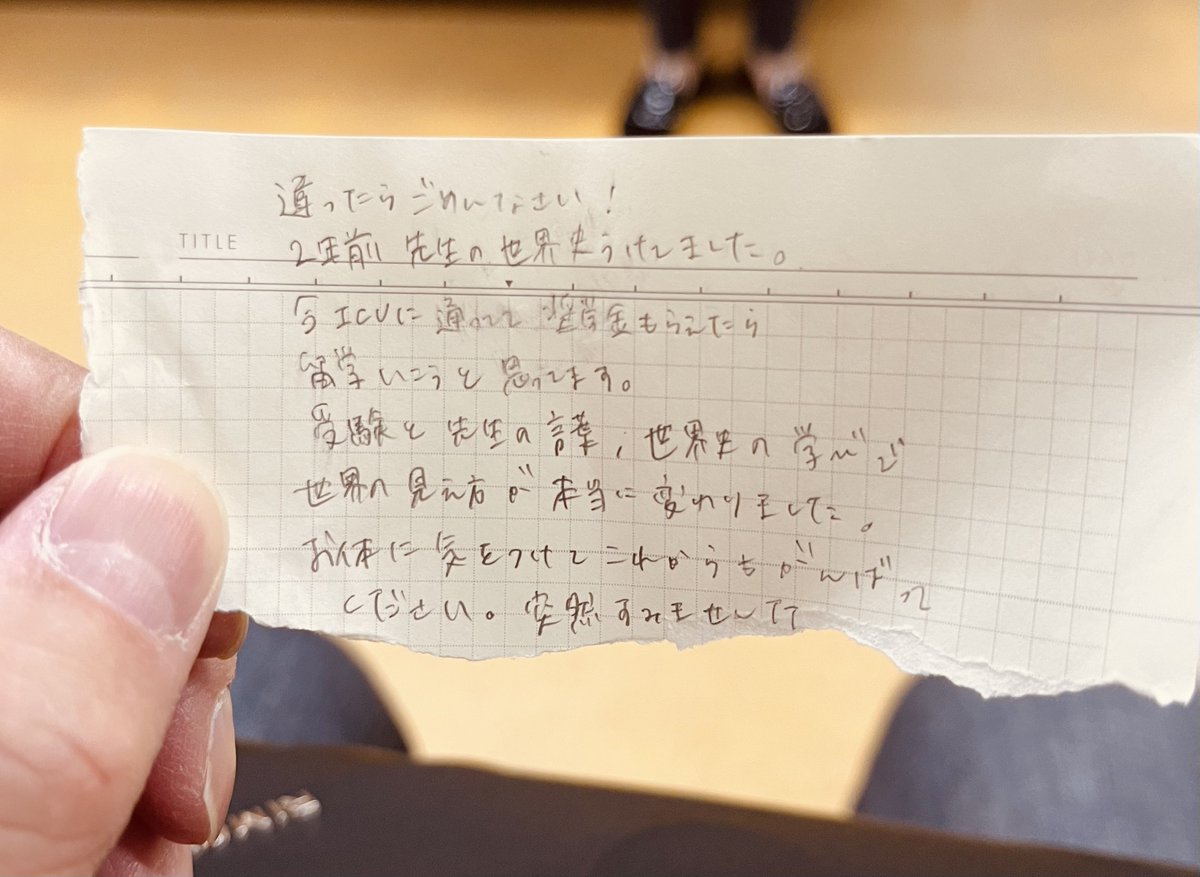 違ったらごめんなさい!
TITLE
2年前 先生の世界史うけてました。
今ICUに通ってて 奨学金もらえたら
留学いこうと思ってます。
受験と先生の言葉, 世界史の学びで
世界の見え方が本当に変わりました。
お体に気をつけてこれからもがんばって
ください。突然すみませんでした